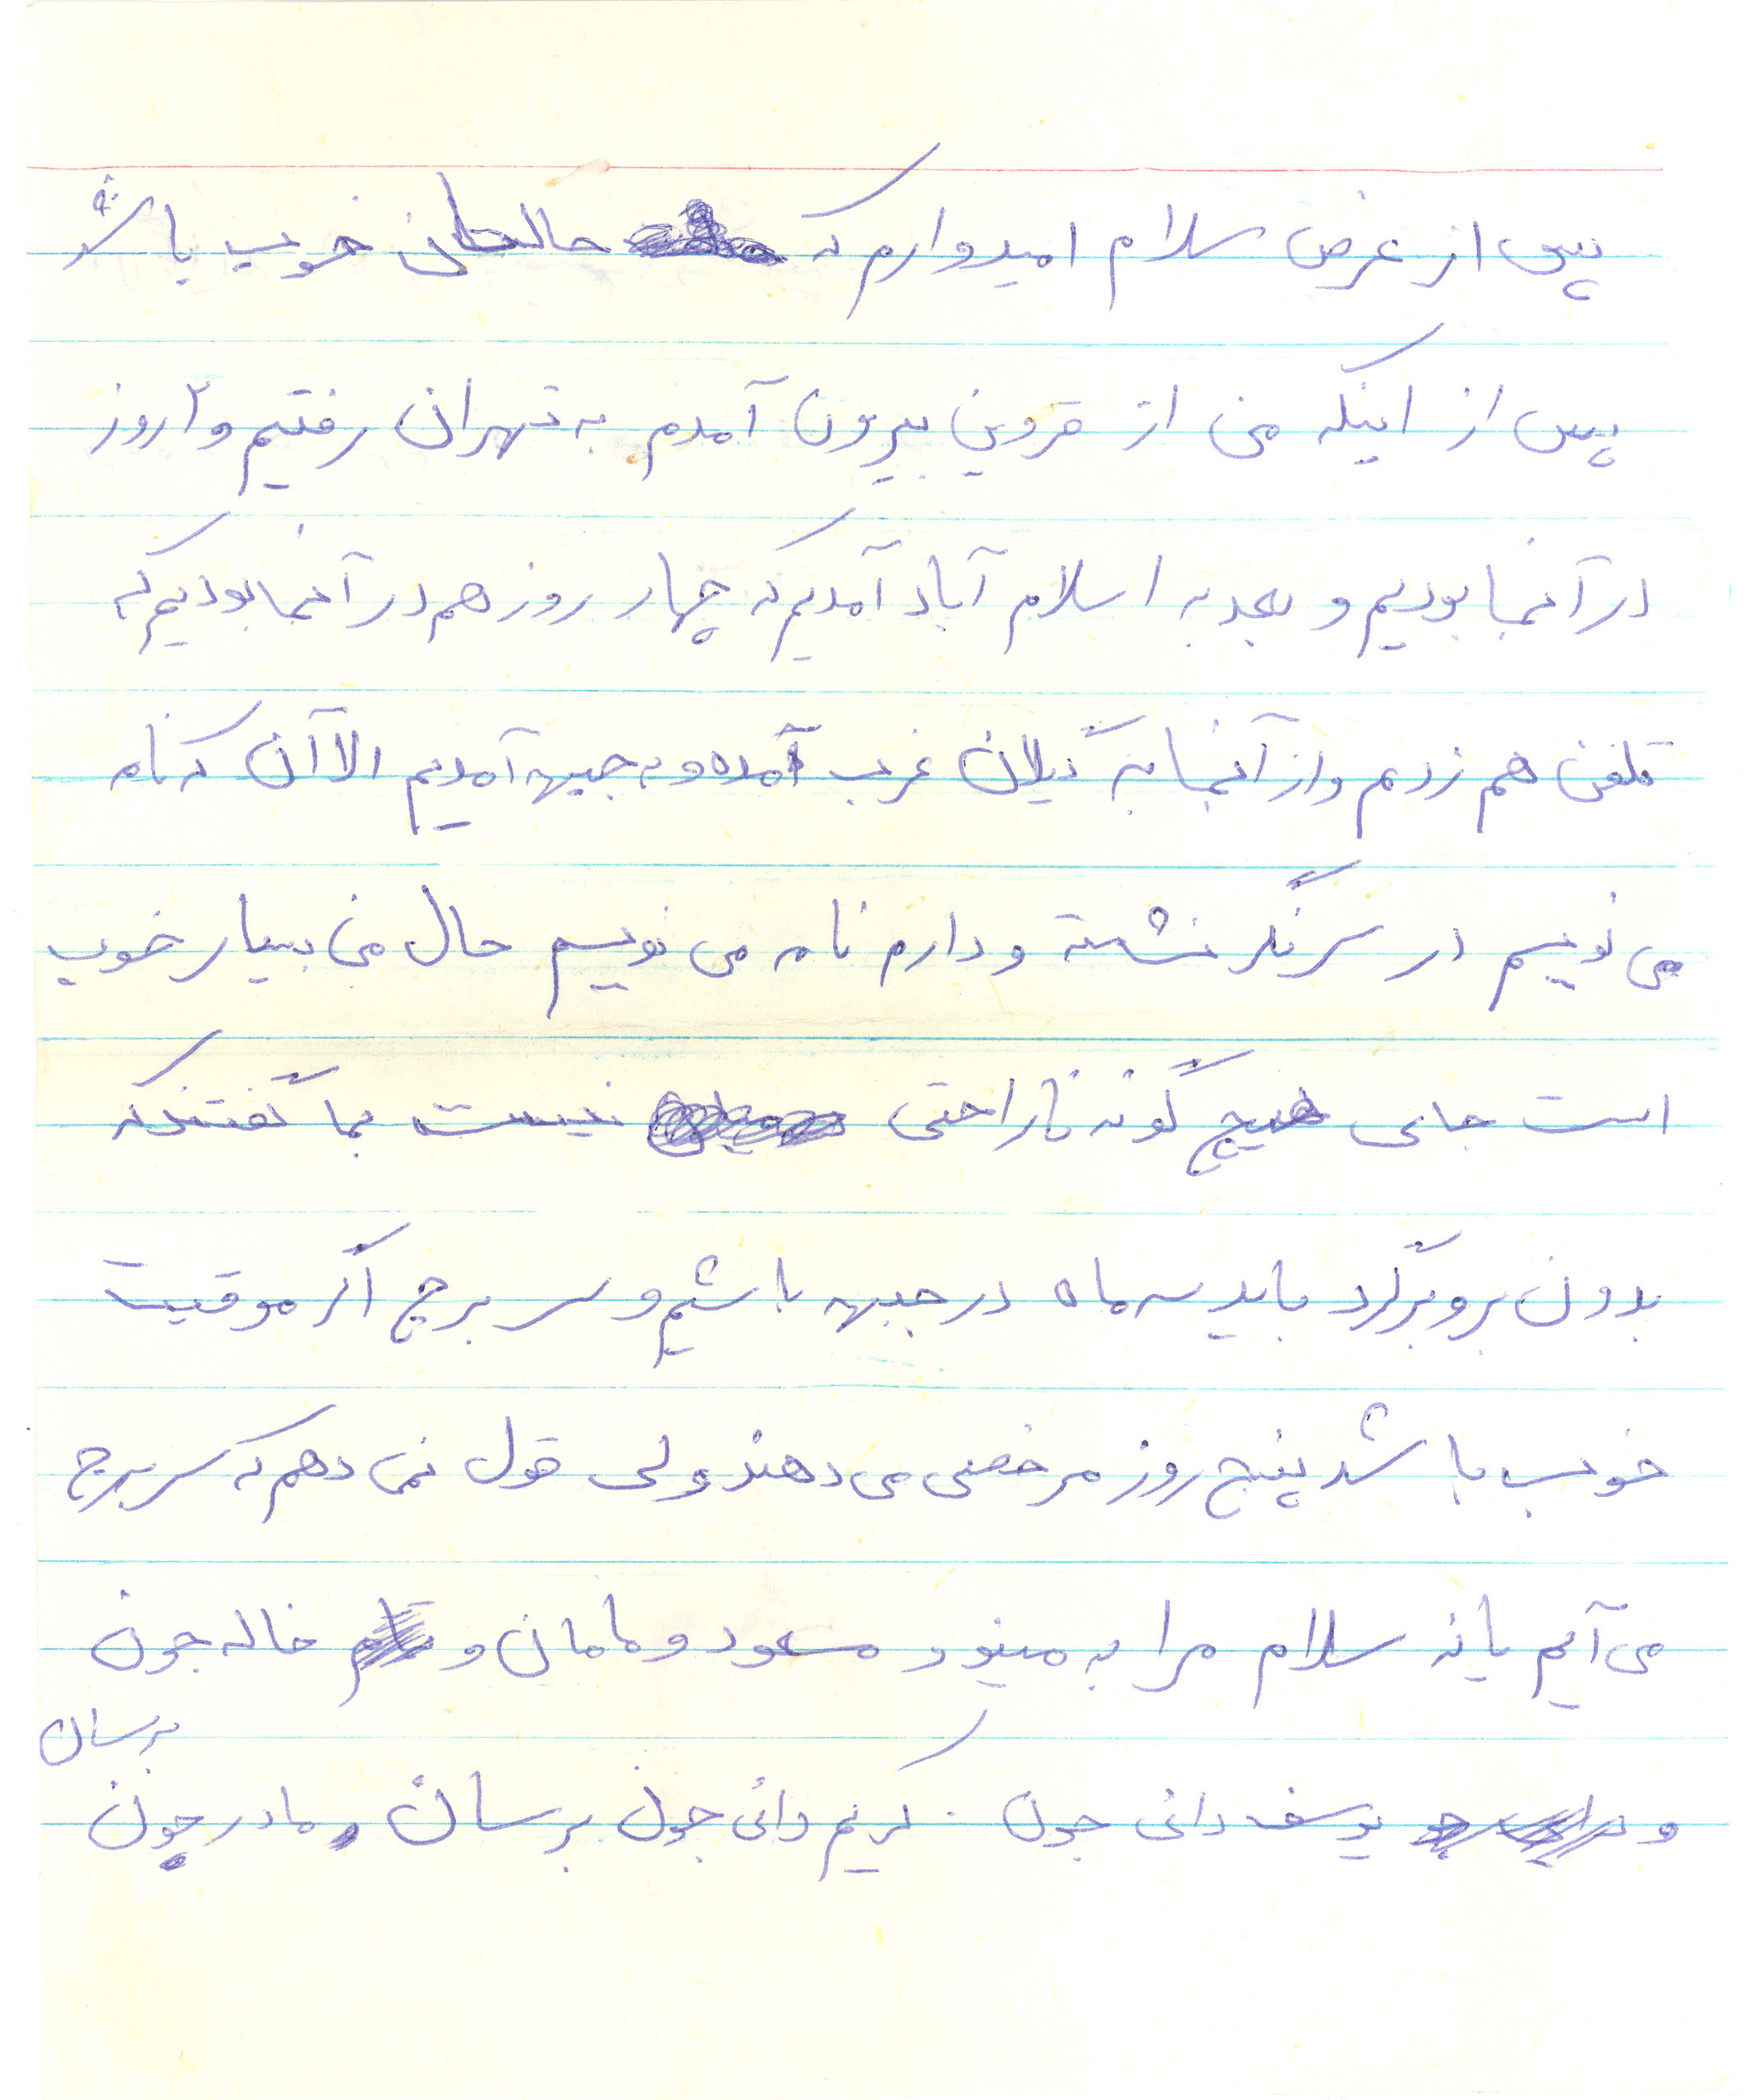 پس از عرض سلام امیدوارم که حالتان خوب باشد
پس از اینکه من از قزوین بیرون آمدم به تهران رفتیم و ۲ روز
در آنجا بودیم و بعد به اسلام آباد آمدیم که چهار روز هم در آنجا بودیم که
تلفن هم زدم و از آنجا به گیلان غرب آمده و به جبهه آمدیم الاآن که نامه
می نویسم در سنگر نشسته و دارم نامه می نویسم حال من بسیار خوب
است جای هیچ گونه ناراحتی نیست بما گفتند که
بدون بروبرگرد باید سه ماه در جبهه باشیم و سر برج اگر موقیت
خوب باشد پنج روز مرخصی می دهند ولی قول نمی دهم که سر برج
می آیم یا نه سلام مرا به مینو و مسعود و مامان و خاله جون
و یوسف دائی جون . کریم دائی جون برسان و مادر جون
برسان